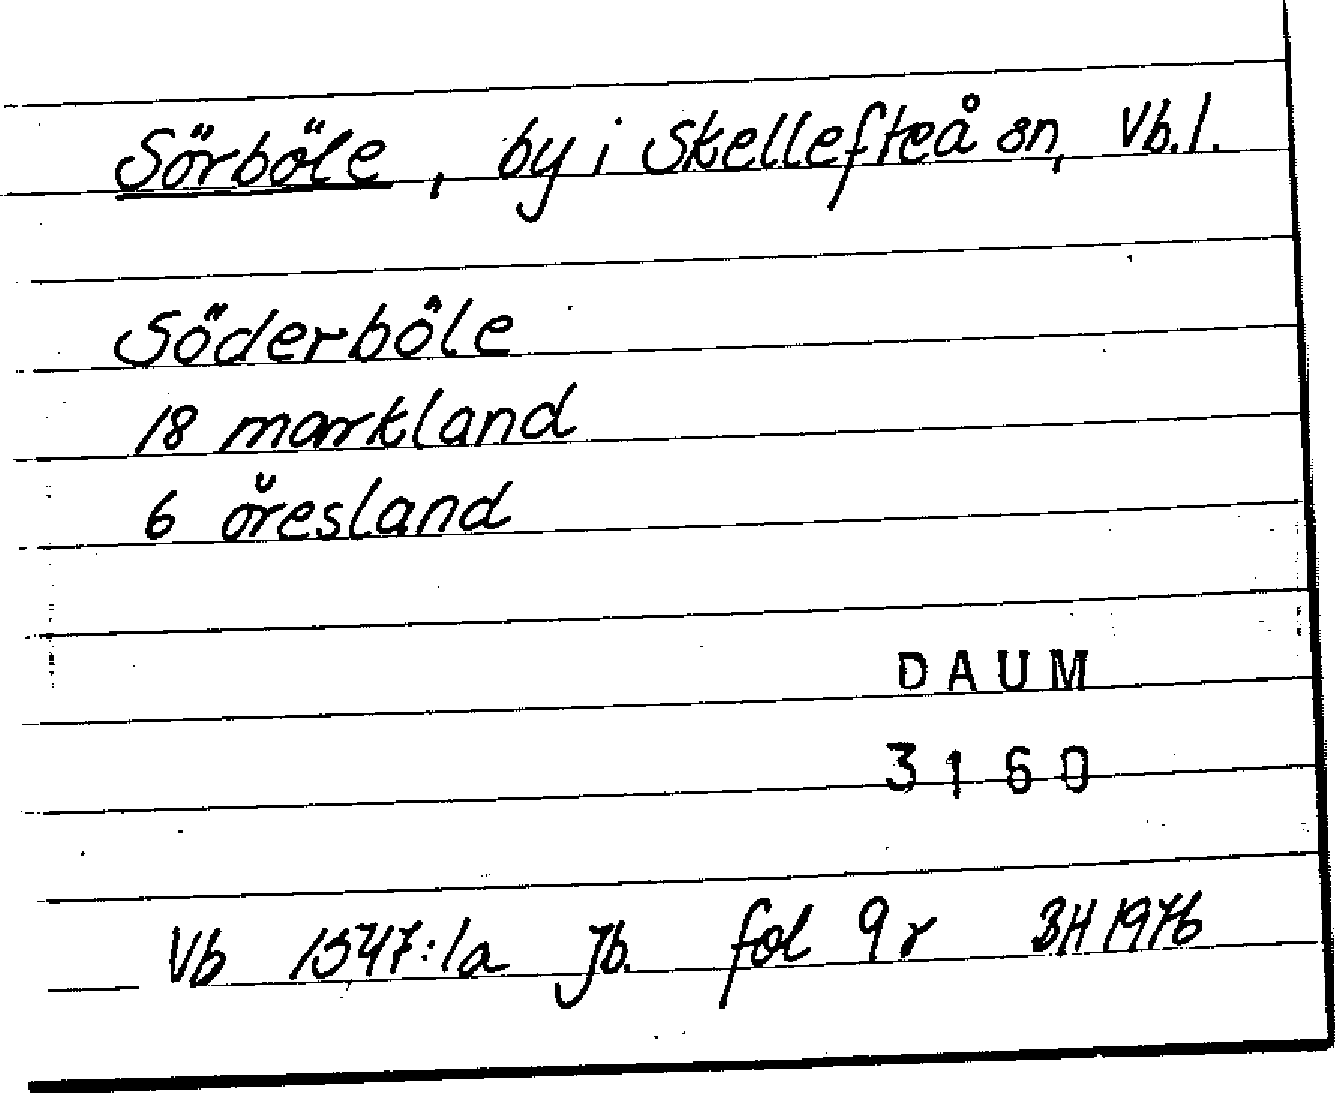 Sörböle, by i Skellefteå sn, Vb.l.
Söderböle
18 markland
6 öresland
DAUM
3160
Vb 1547:1a Jb. fol 9 r BH 1976